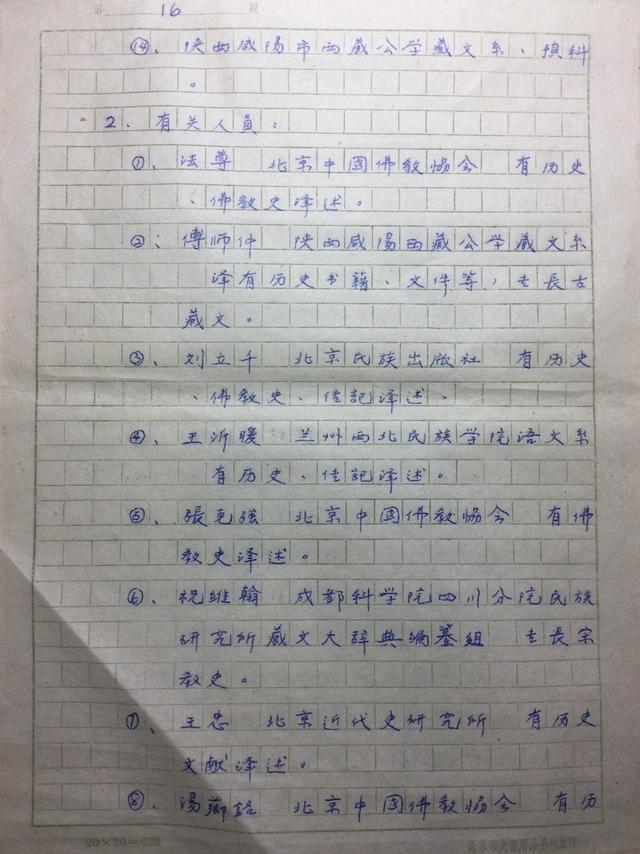 第 16 頁
⑭、陕西咸陽市西藏公学藏文系、預科
。
2、有关人員：
①、法尊 北京中國佛教協会 有历史
、佛教史译述。
②、傅师仲 陕西咸陽西藏公学藏文系
译有历史书籍、文件等，专長古
藏文。
③、刘立千 北京民族出版社 有历史
、佛教史、传記译述。
④、王沂暖 兰州西北民族学院语文系
有历史、传記译述。
⑤、張克強 北京中國佛教協会 有佛
教史译述。
⑥、祝维翰 成都科学院四川分院民族
研究所藏文大辞典编纂組 专長宗
教史。
⑦、王忠 北京近代史研究所 有历史
文献译述。
⑧、湯薌銘 北京中國佛教協会 有历
20×20=400